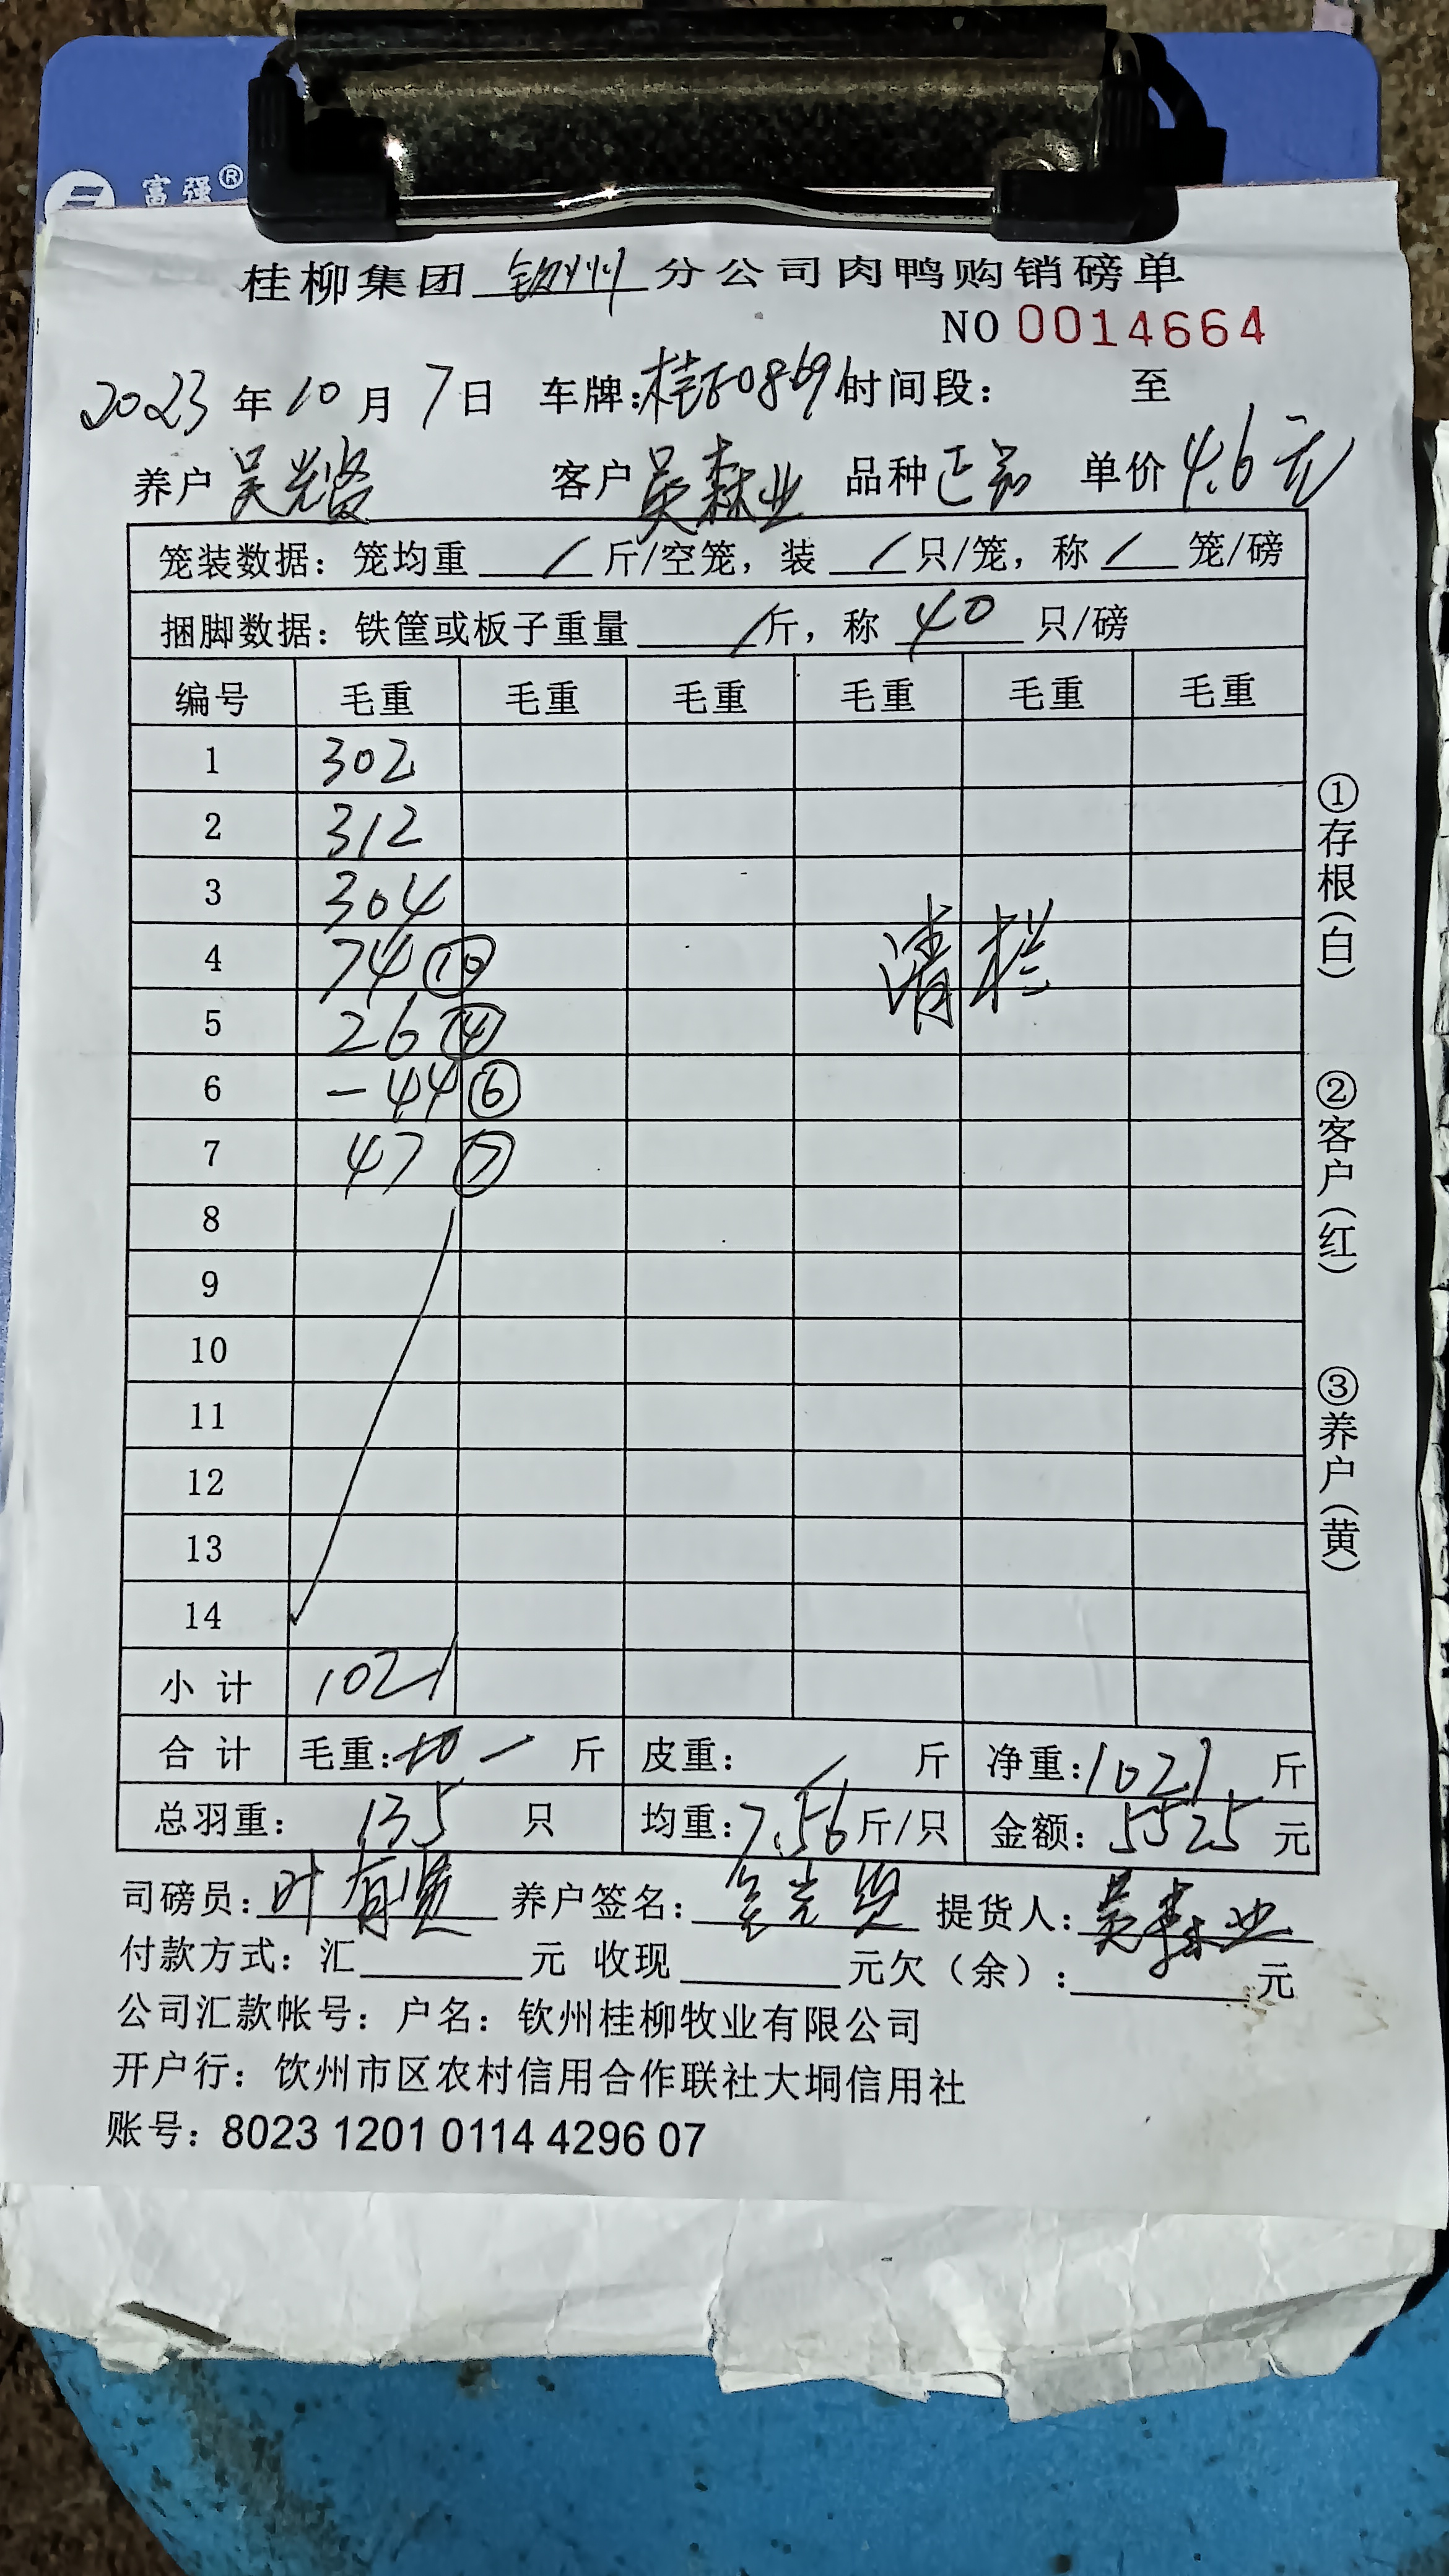 富强®
桂柳集团 钦州 分公司肉鸭购销磅单
NO 0014664
2023 年 10 月 7 日 车牌: 桂 0869 时间段: 至
养户 吴光贤 客户 吴森业 品种 正品 单价 4.6元
笼装数据: 笼均重 / 斤/空笼, 装 / 只/笼, 称 / 笼/磅
捆脚数据: 铁筐或板子重量 / 斤, 称 40 只/磅
编号 毛重 毛重 毛重 毛重 毛重 毛重
1 302
2 312
3 304
4 74 ⑩
5 26 ④
6 -44 ⑥
7 47 ⑦
清栏
8
9
10
11
12
13
14
小 计 1021
合 计 毛重: 斤 皮重: / 斤 净重: 1021 斤
总羽重: 135 只 均重: 7.56 斤/只 金额: 5525 元
司磅员: 叶有贤 养户签名: 吴光贤 提货人: 吴森业
付款方式: 汇 元 收现 元欠(余): 元
公司汇款帐号: 户名: 钦州桂柳牧业有限公司
开户行: 饮州市区农村信用合作联社大垌信用社
账号: 8023 1201 0114 4296 07
①存根(白)
②客户(红)
③养户(黄)